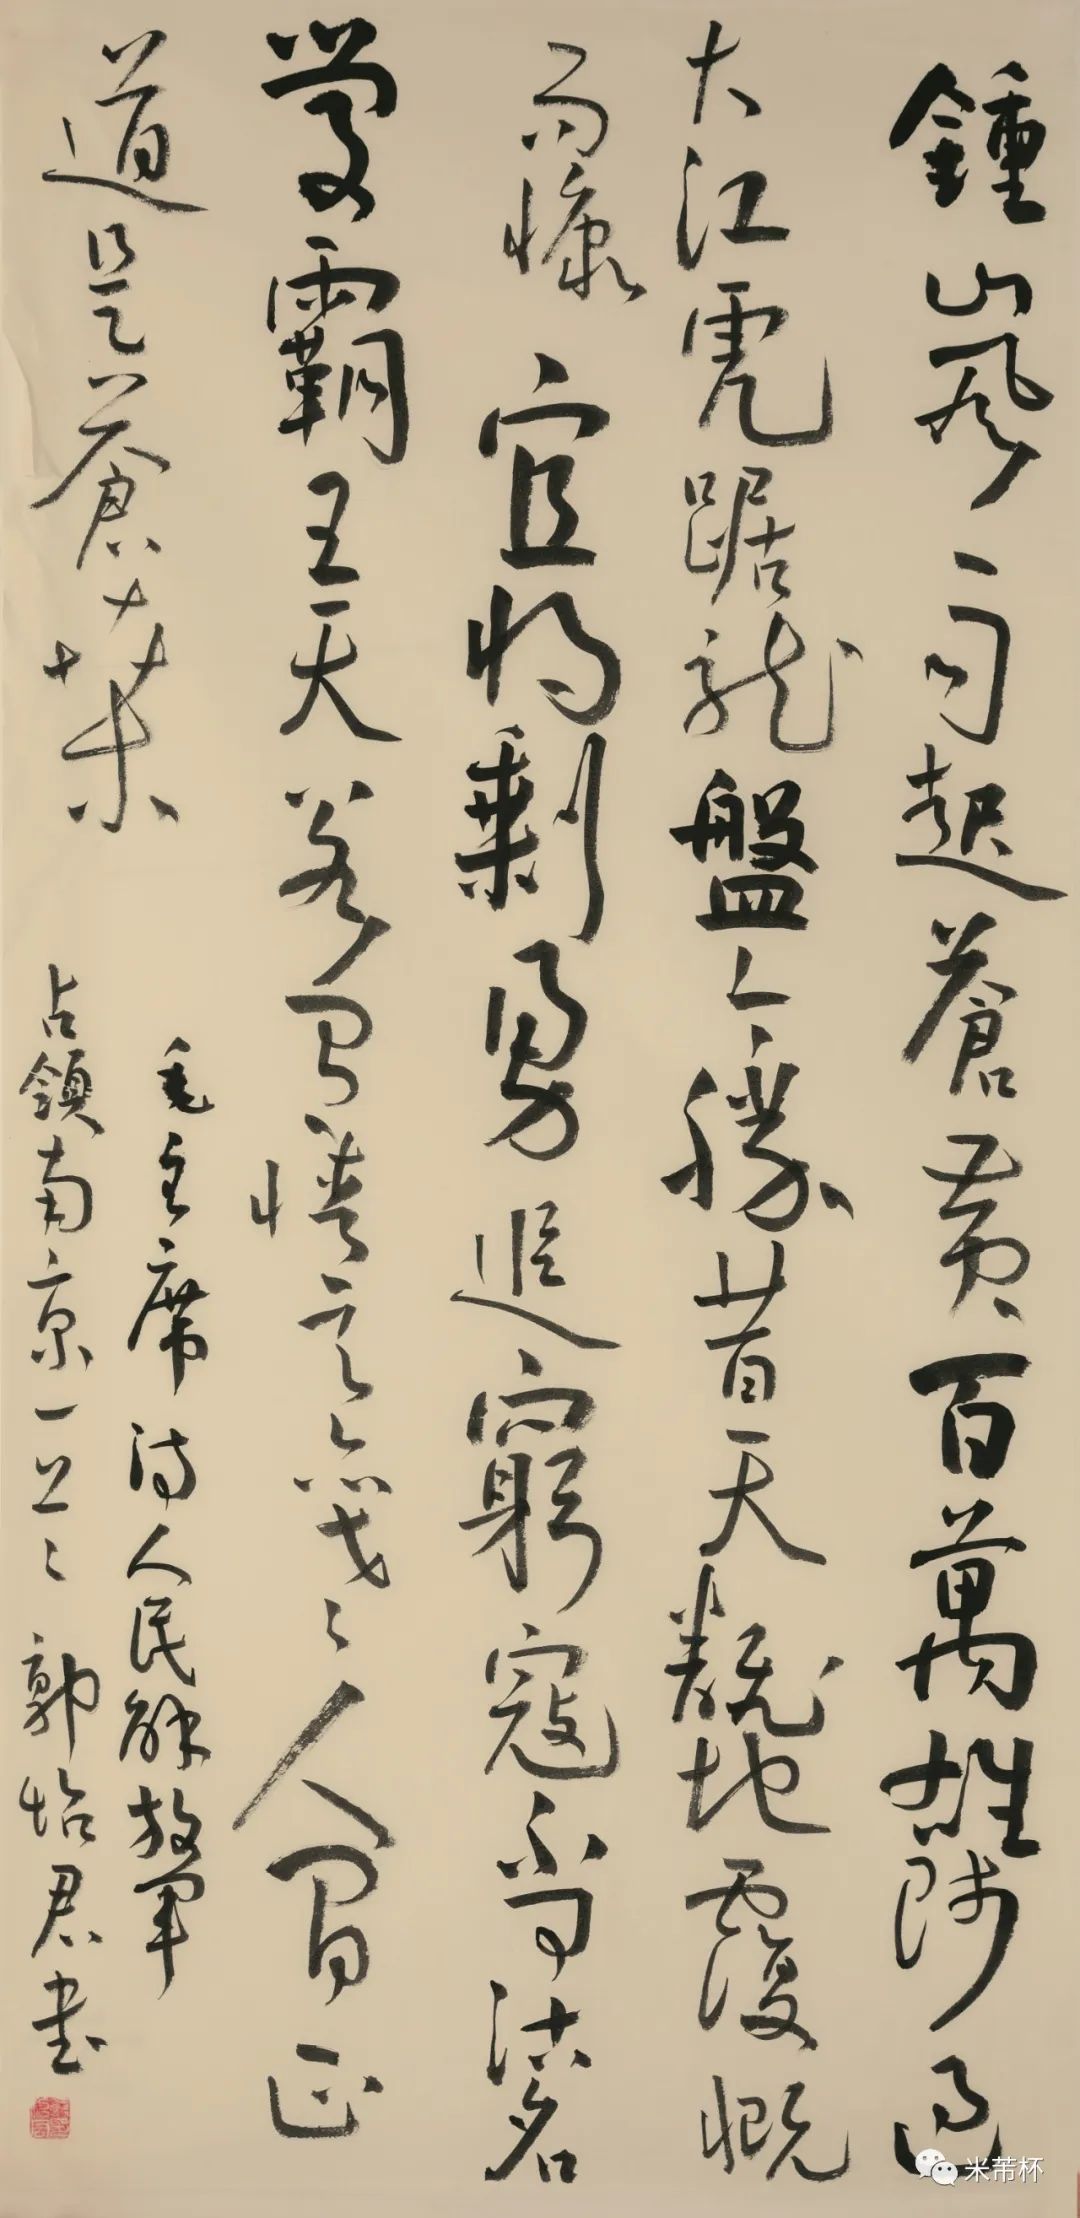 鍾山風雨起蒼黃百萬雄師過
大江虎踞龍盤今勝昔天翻地覆慨
而慷宜將剩勇追窮寇不可沽名
學霸王天若有情天亦老人間正
道是蒼桑
毛主席詩人民解放軍
占領南京一首郭怡君書
米芾杯